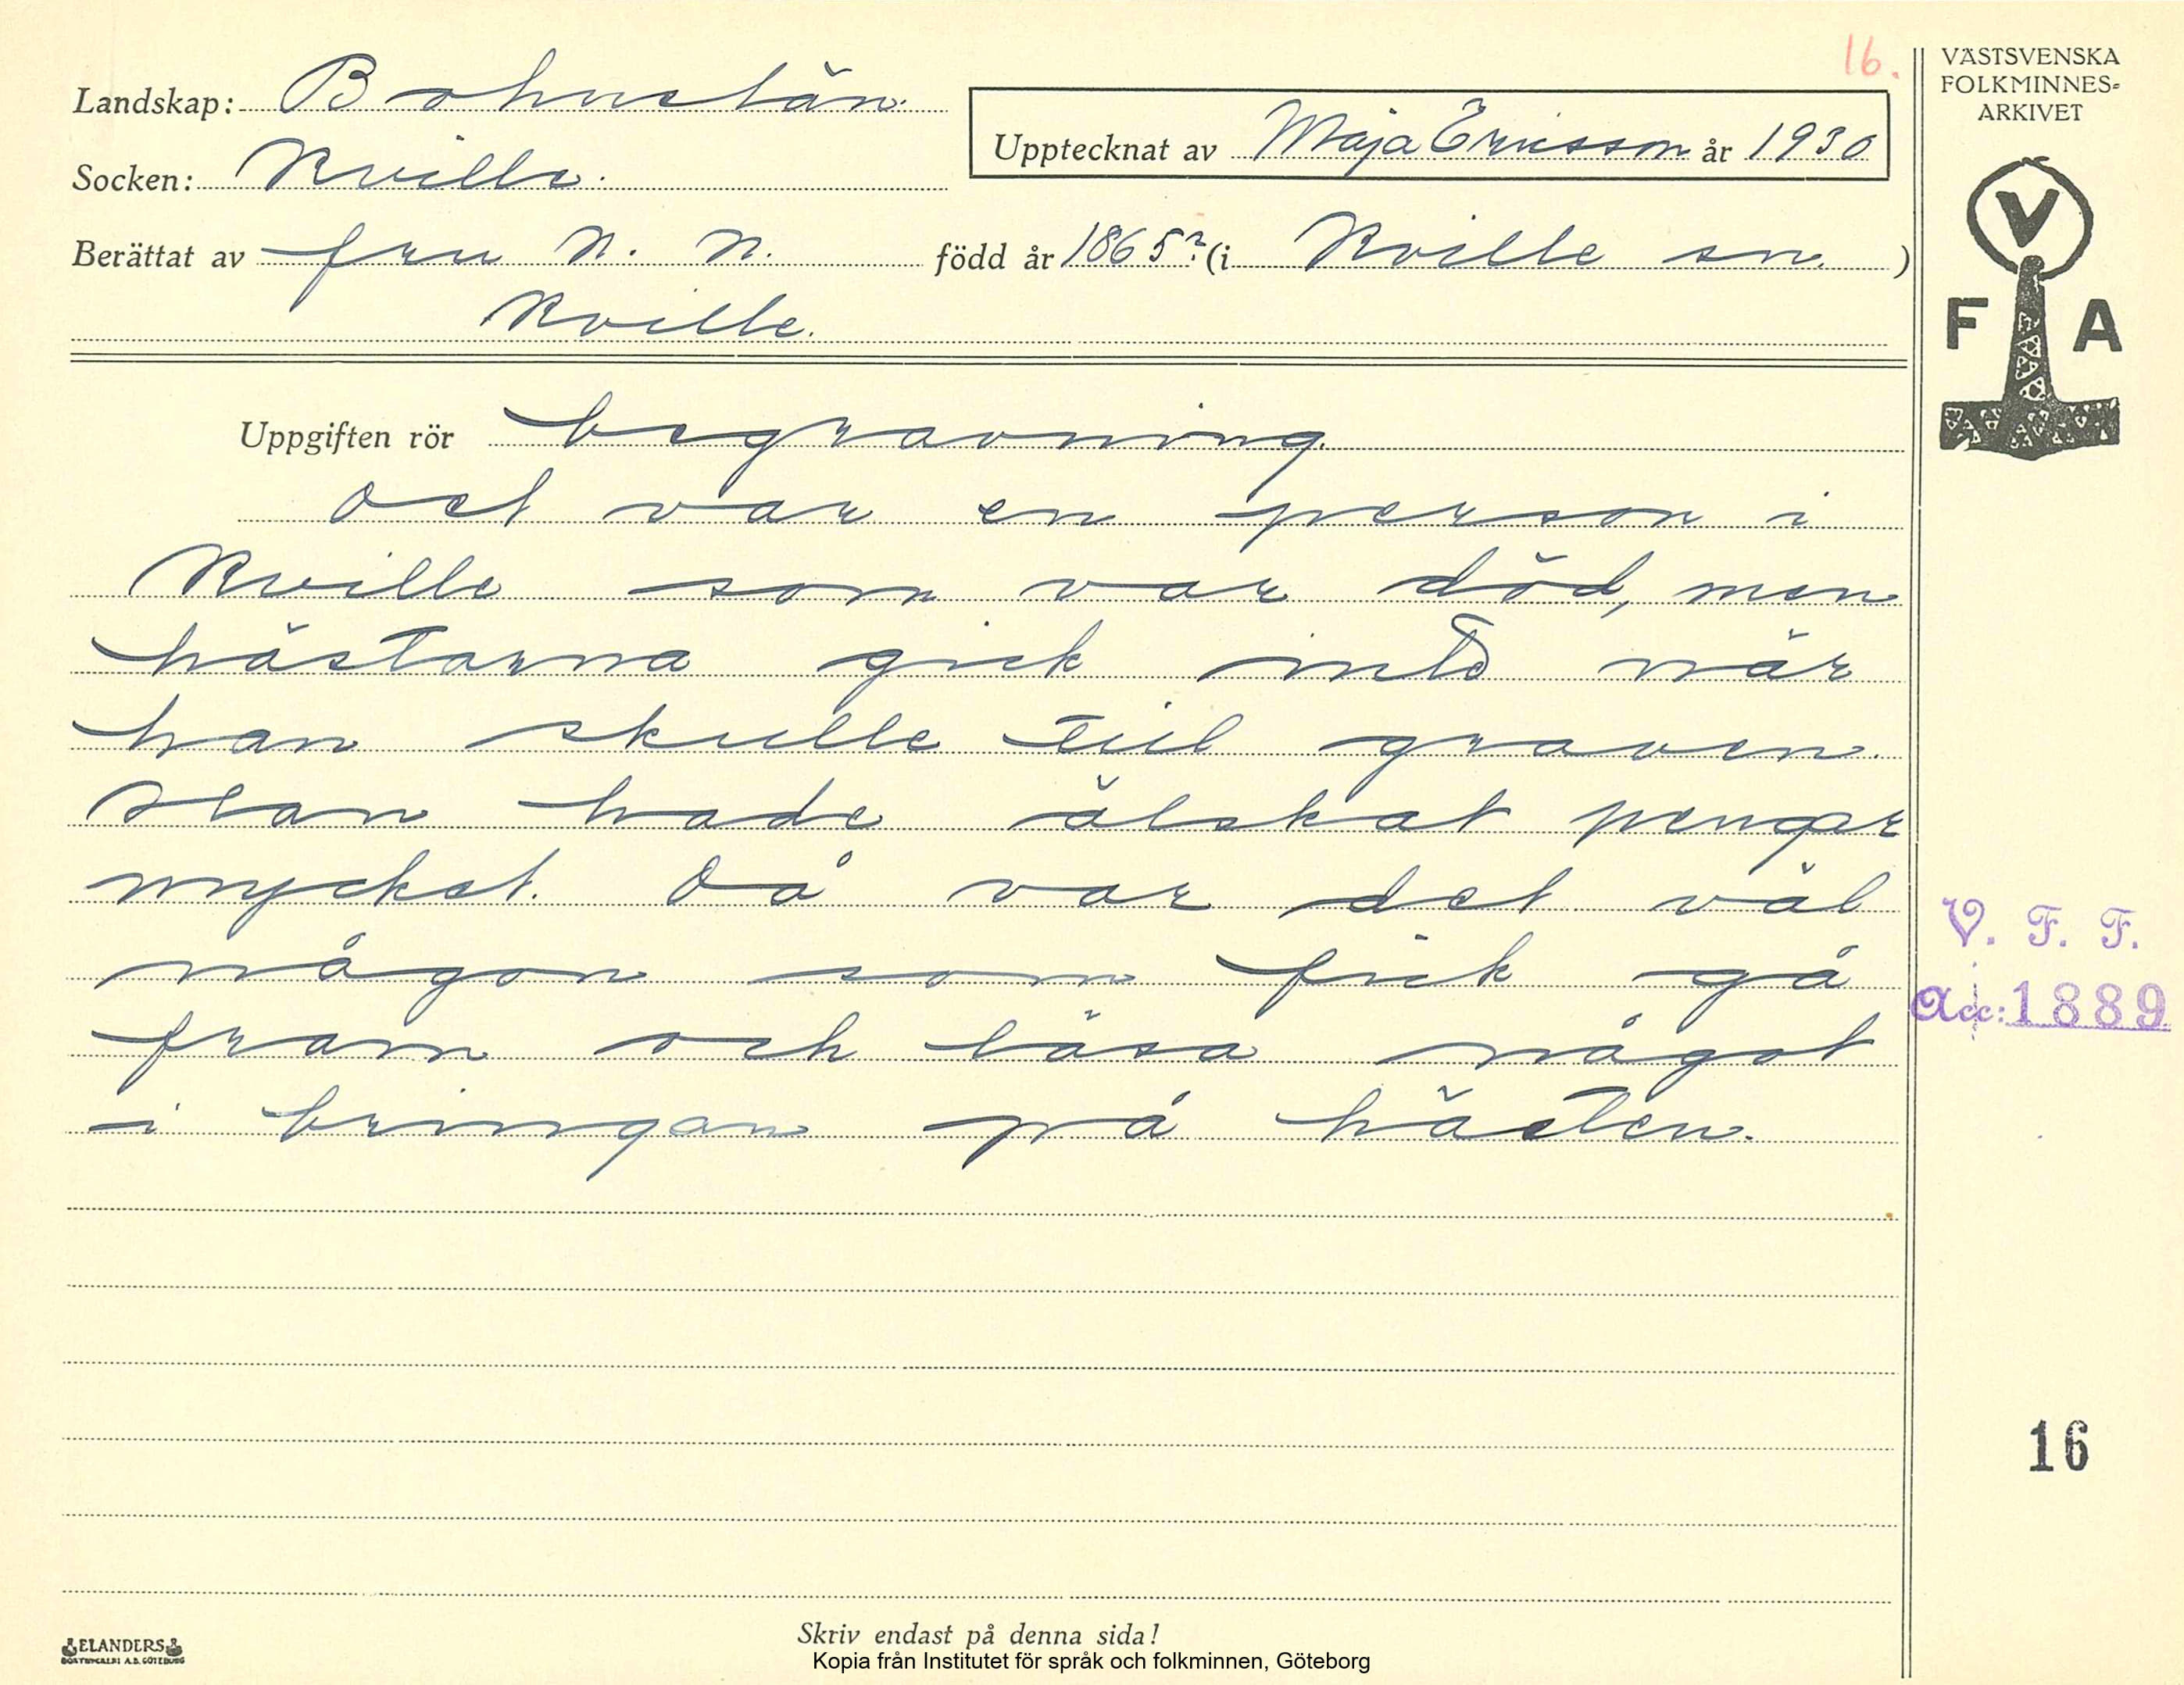 16.
VÄSTSVENSKA
FOLKMINNES=
ARKIVET
Landskap: Bohuslän.
Upptecknat av Maja Ericsson år 1930
Socken: Kville.
Berättat av fru N. N. född år 1865? (i Kville sn.)
Kville.
V
F A
Uppgiften rör begravning.
Det var en person i
Kville som var död, men
hästarna gick inte när
han skulle till graven.
Han hade älskat pengar
mycket. Då var det väl
någon som fick gå
fram och läsa något
i bringan på hästen.
V. F. F.
Acc: 1889
16
Skriv endast på denna sida!
ELANDERS
BOKTRYCKERI A.B. GÖTEBORG
Kopia från Institutet för språk och folkminnen, Göteborg